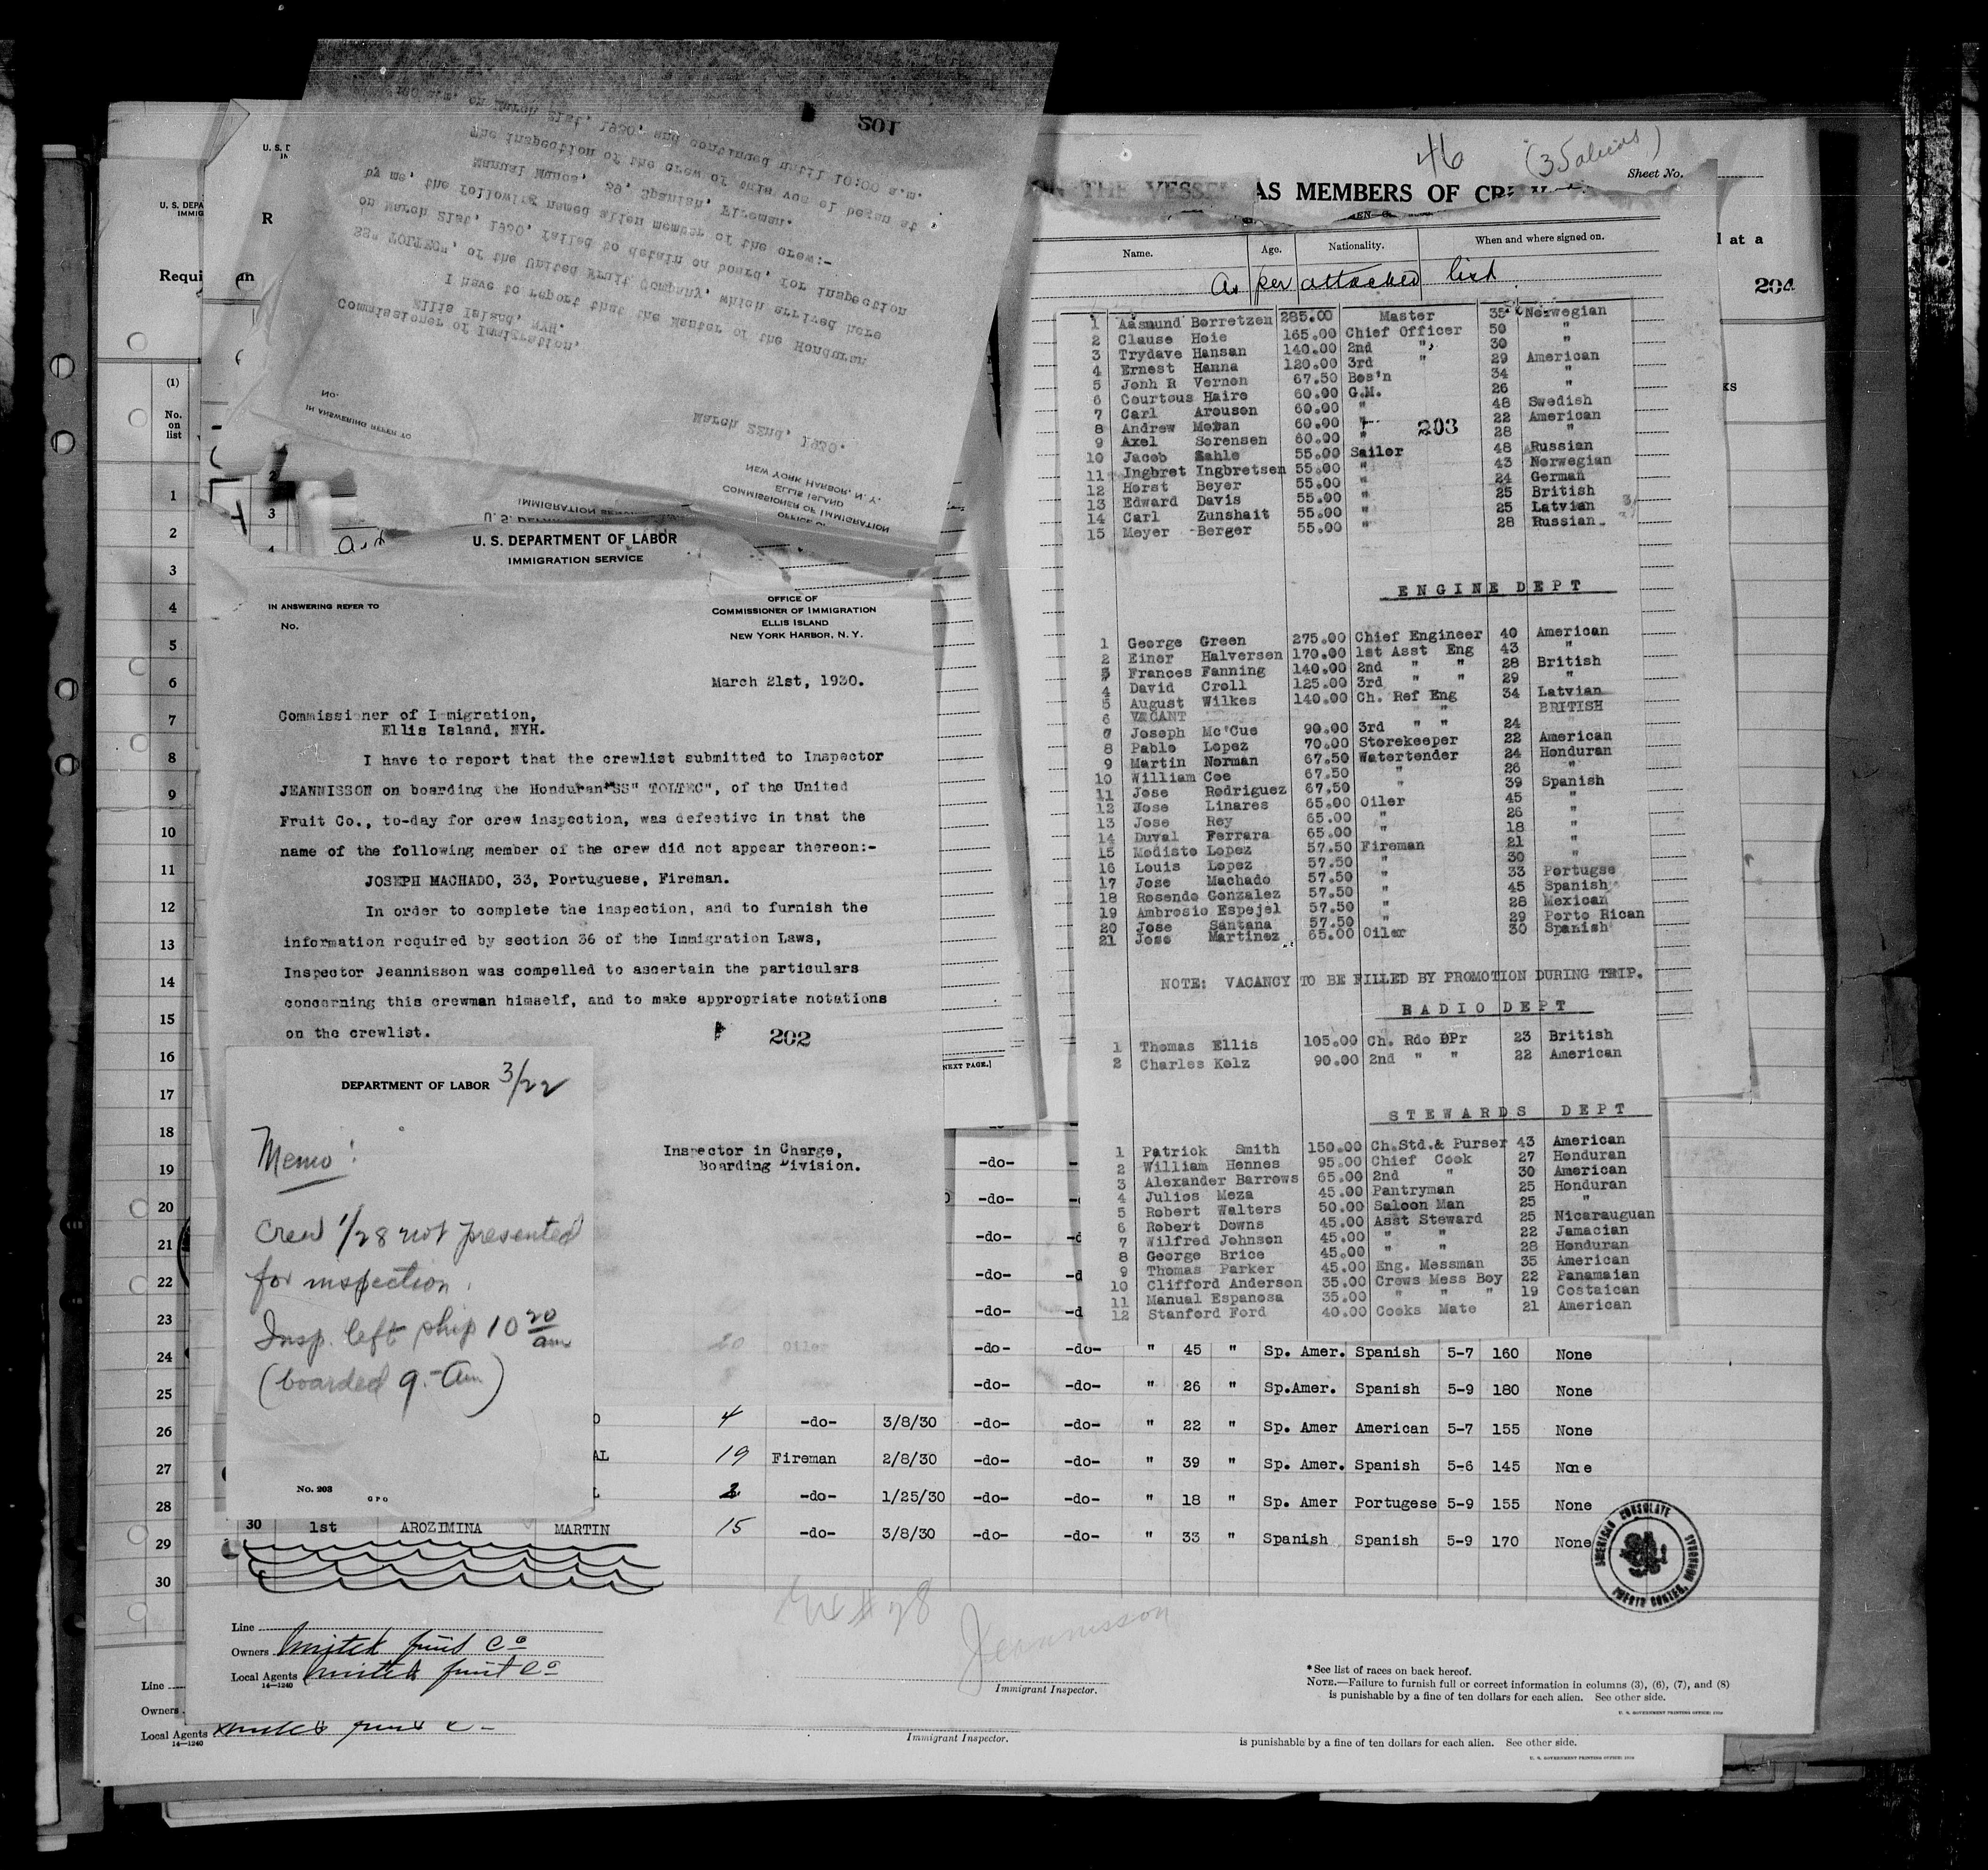 201
100 a.m. on March 21st, 1930, and continued until 10:00 a.m.
The inspection of the crew of this vessel began at
Manual Munos, 29, Spanish, Fireman.
by me, the following named alien member of the crew:-
on March 21st, 1930, failed to detain on board, for inspection
SS" TOLTEC", of the United Fruit Company, which arrived here
I have to report that the Master of the Honduran
Ellis Island, NYH.
Commissioner of Immigration,
No.
IN ANSWERING REFER TO
March 22nd, 1930.
NEW YORK HARBOR, N. Y.
ELLIS ISLAND
COMMISSIONER OF IMMIGRATION
OFFICE OF
IMMIGRATION SERVICE
U. S. DEPARTMENT OF LABOR
U. S. DEPARTMENT OF LABOR
IMMIGRATION SERVICE
IN ANSWERING REFER TO
No.
OFFICE OF
COMMISSIONER OF IMMIGRATION
ELLIS ISLAND
NEW YORK HARBOR, N. Y.
March 21st, 1930.
Commissioner of Immigration,
Ellis Island, NYH.
I have to report that the crewlist submitted to Inspector
JEANNISSON on boarding the Honduran SS" TOLTEC", of the United
Fruit Co., to-day for crew inspection, was defective in that the
name of the following member of the crew did not appear thereon:-
JOSEPH MACHADO, 33, Portuguese, Fireman.
In order to complete the inspection, and to furnish the
information required by section 36 of the Immigration Laws,
Inspector Jeannisson was compelled to ascertain the particulars
concerning this crewman himself, and to make appropriate notations
on the crewlist.
202
Inspector in Charge,
Boarding Division.
DEPARTMENT OF LABOR 3/22
Memo:
Crew 1/28 not presented
for inspection.
Insp. left ship 10 20 am
(boarded 9.- Am)
No. 203
GPO
46 (35 aliens)
Sheet No.
ON THE VESSEL AS MEMBERS OF CREW
Name. Age. Nationality. When and where signed on.
As per attached list
204
1 Aasmund Borretzen 285.00 Master 35 Norwegian
2 Clause Hoie 165.00 Chief Officer 50 "
3 Trydave Hansan 140.00 2nd " 30 "
4 Ernest Hanna 120.00 3rd " 29 American
5 Jonh R Vernon 67.50 Bos'n 34 "
6 Courtous Haire 60.00 G.M. 26 "
7 Carl Arouson 60.00 " 48 Swedish
8 Andrew Moran 60.00 " 22 American
203
9 Axel Sorensen 60.00 " 28 "
10 Jacob Sahle 55.00 Sailor 48 Russian
11 Ingbret Ingbretsen 55.00 " 43 Norwegian
12 Horst Beyer 55.00 " 24 German
13 Edward Davis 55.00 " 25 British
14 Carl Zunshait 55.00 " 25 Latvian
15 Meyer Berger 55.00 " 28 Russian
ENGINE DEPT
1 George Green 275.00 Chief Engineer 40 American
2 Einor Halversen 170.00 1st Asst Eng 43 "
3 Frances Fanning 140.00 2nd " " 28 British
4 David Croll 125.00 3rd " " 29 "
5 August Wilkes 140.00 Ch. Ref Eng 34 Latvian
6 VACANT " " BRITISH
7 Joseph Mc'Cue 90.00 3rd " " 24 "
8 Pablo Lopez 70.00 Storekeeper 22 American
9 Martin Norman 67.50 Watertender 24 Honduran
10 William Coe 67.50 " 26 "
11 Jose Rodriguez 67.50 " 39 Spanish
12 Jose Linares 65.00 Oiler 45 "
13 Jose Rey 65.00 " 26 "
14 Duval Ferrara 65.00 " 18 "
15 Modisto Lopez 57.50 Fireman 21 "
16 Louis Lopez 57.50 " 30 "
17 Jose Machado 57.50 " 33 Portugse
18 Rosendo Gonzalez 57.50 " 45 Spanish
19 Ambrosio Espejel 57.50 " 28 Mexican
20 Jose Santana 57.50 " 29 Porto Rican
21 Jose Martinez 65.00 Oiler 30 Spanish
NOTE: VACANCY TO BE FILLED BY PROMOTION DURING TRIP.
RADIO DEPT
1 Thomas Ellis 105.00 Ch. Rdo OPr 23 British
2 Charles Kolz 90.00 2nd " " 22 American
STEWARDS DEPT
1 Patrick Smith 150.00 Ch.Std.& Purser 43 American
2 William Hennes 95.00 Chief Cook 27 Honduran
3 Alexander Barrows 65.00 2nd " 30 American
4 Julios Meza 45.00 Pantryman 25 Honduran
5 Robert Walters 50.00 Saloon Man 25 "
6 Robert Downs 45.00 Asst Steward 25 Nicarauguan
7 Wilfred Johnson 45.00 " " 22 Jamacian
8 George Brice 45.00 " " 28 Honduran
9 Thomas Parker 45.00 Eng. Messman 35 American
10 Clifford Anderson 35.00 Crews Mess Boy 22 Panamaian
11 Manual Espanosa 35.00 " " " 19 Costaican
12 Stanford Ford 40.00 Cooks Mate 21 American
-do-
-do-
-do-
-do-
-do-
20 Oiler -do- -do- " 45 " Sp. Amer. Spanish 5-7 160 None
-do- -do- " 26 " Sp.Amer. Spanish 5-9 180 None
4 -do- 3/8/30 -do- -do- " 22 " Sp. Amer American 5-7 155 None
AL 19 Fireman 2/8/30 -do- -do- " 39 " Sp. Amer. Spanish 5-6 145 None
2 -do- 1/25/30 -do- -do- " 18 " Sp. Amer Portugese 5-9 155 None
30 1st AROZIMINA MARTIN 15 -do- 3/8/30 -do- -do- " 33 " Spanish Spanish 5-9 170 None
AMERICAN CONSULATE
PUERTO CORTES, HONDURAS
(1)
No. on list
1
2
3
4
5
6
7
8
9
10
11
12
13
14
15
16
17
18
19
20
21
22
23
24
25
26
27
28
29
30
NEXT PAGE.]
#28
Jeannisson
Line
Owners United Fruit Co
Local Agents United Fruit Co
14—1240
Immigrant Inspector.
*See list of races on back hereof.
NOTE.—Failure to furnish full or correct information in columns (3), (6), (7), and (8)
is punishable by a fine of ten dollars for each alien. See other side.
U. S. GOVERNMENT PRINTING OFFICE
Line
Owners
Local Agents United Fruit Co
14—1240
Immigrant Inspector.
is punishable by a fine of ten dollars for each alien. See other side.
U. S. GOVERNMENT PRINTING OFFICE